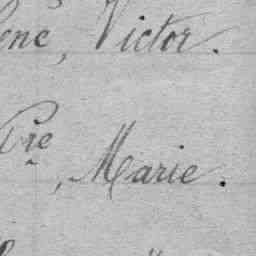 ène, Victor.
Pre, Marie.